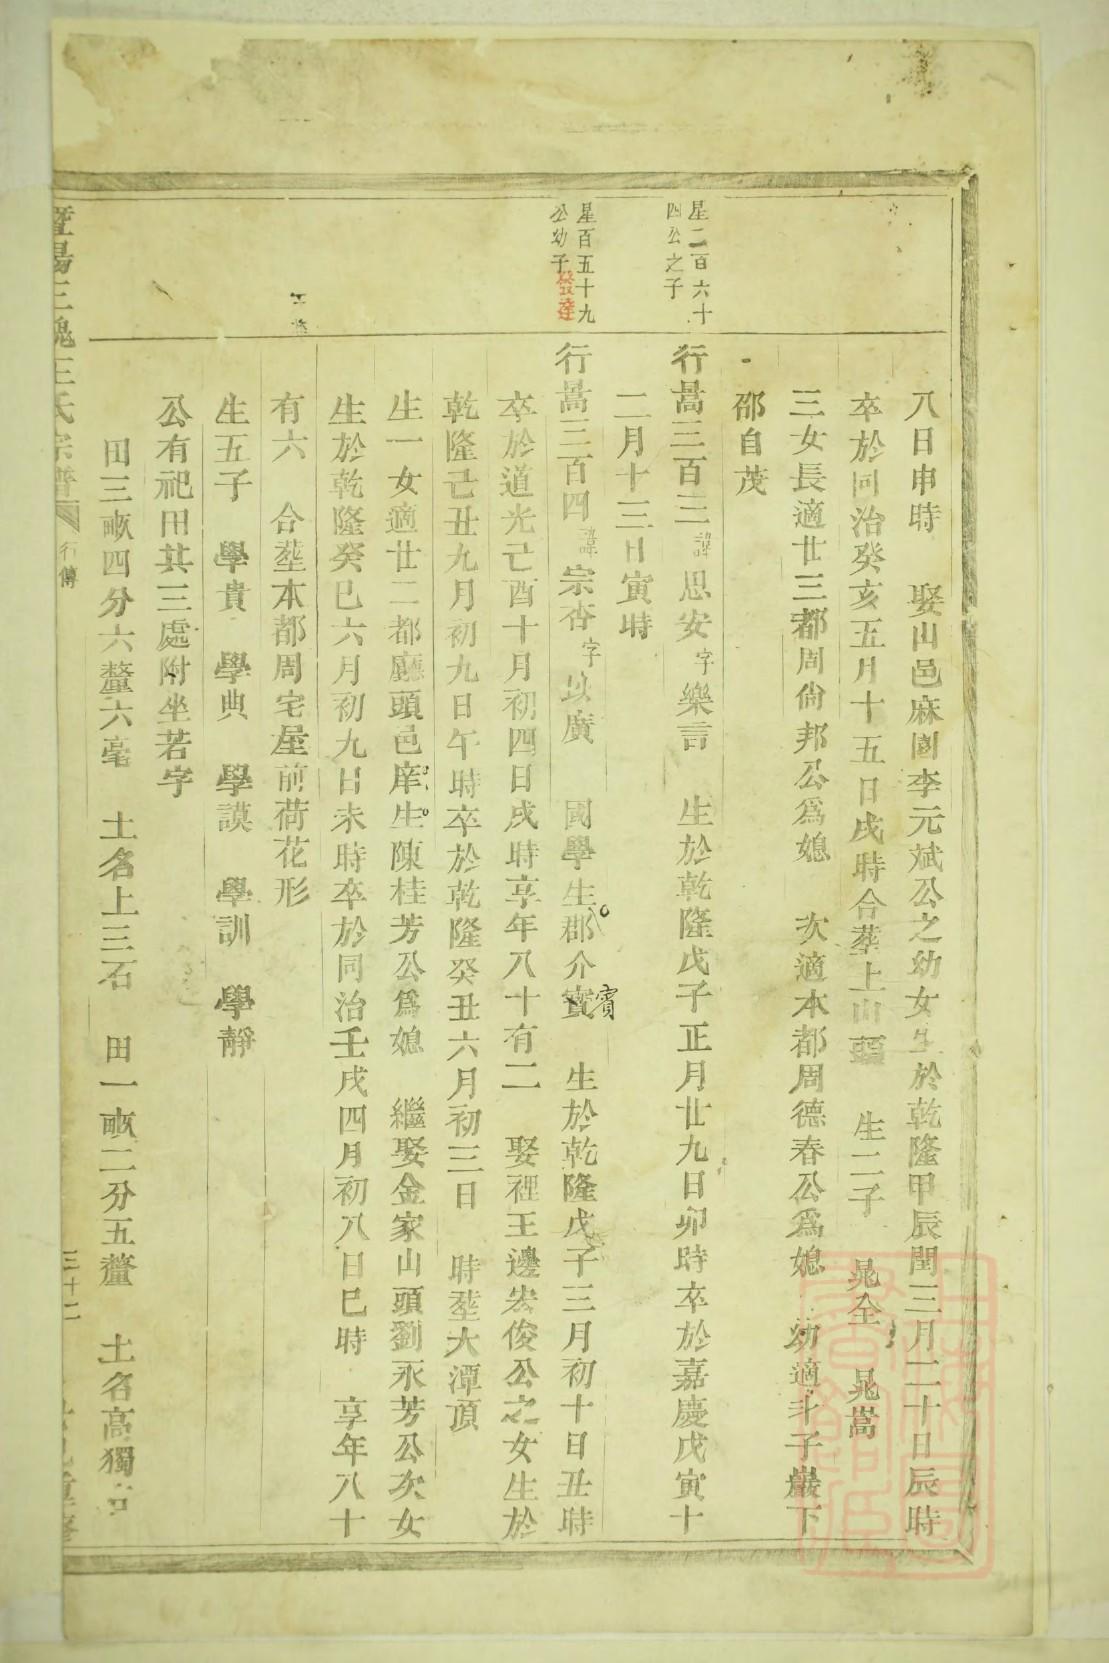 八日申時　娶山邑麻園李元斌公之幼女生於乾隆甲辰閏三月二十日辰時
卒於同治癸亥五月十五日戌時合葬上山頭　生二子　晁全　晁嵩
三女長適廿三都周尙邦公爲媳　次適本都周德春公爲媳　幼適斗子巖下
邵自茂
星二百六十
四公之子
行暠三百三諱思安字樂言　生於乾隆戊子正月廿九日卯時卒於嘉慶戊寅十
二月十三日寅時
星百五十九
公幼子發達
行暠三百四諱宗杏字以廣　國學生郡介賓　生於乾隆戊子三月初十日丑時
賓
卒於道光己酉十月初四日戌時享年八十有二　娶裡王邊宏俊公之女生於
乾隆己丑九月初九日午時卒於乾隆癸丑六月初三日　時塟大潭頂
生一女適廿二都廳頭邑庠生陳桂芳公爲媳　繼娶金家山頭劉永芳公次女
生於乾隆癸巳六月初九日未時卒於同治壬戌四月初八日巳時　享年八十
有六　合塟本都周宅屋前荷花形
生五子　學貴　學典　學謨　學訓　學靜
公有祀田其三處附坐若字
田三畝四分六釐六毫　土名上三石　田一畝二分五釐　土名高獨
暨陽三槐王氏宗譜　行傳　三十二